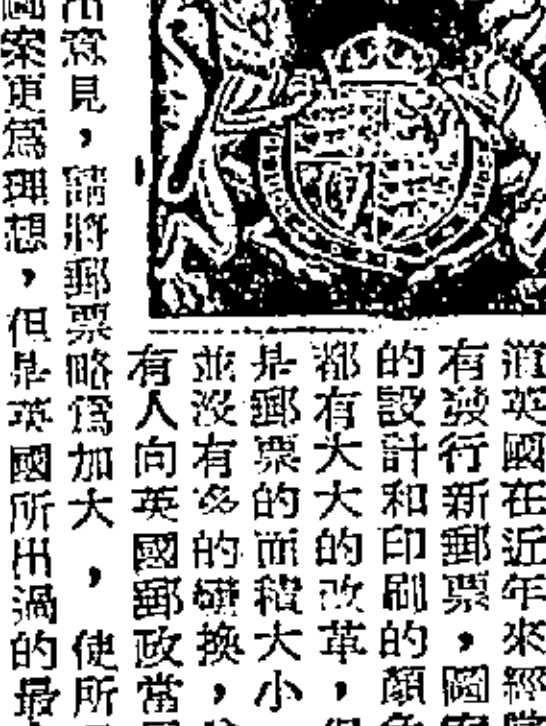 道英國在近年來經
有發行新郵票，圖
的設計和印刷的顏
都有大大的改革，
是郵票的面積大小
並没有多的變換，
有人向英國郵政當
出意見，請將郵票略爲加大，使所
圖案更爲理想，但是英國所出過的最